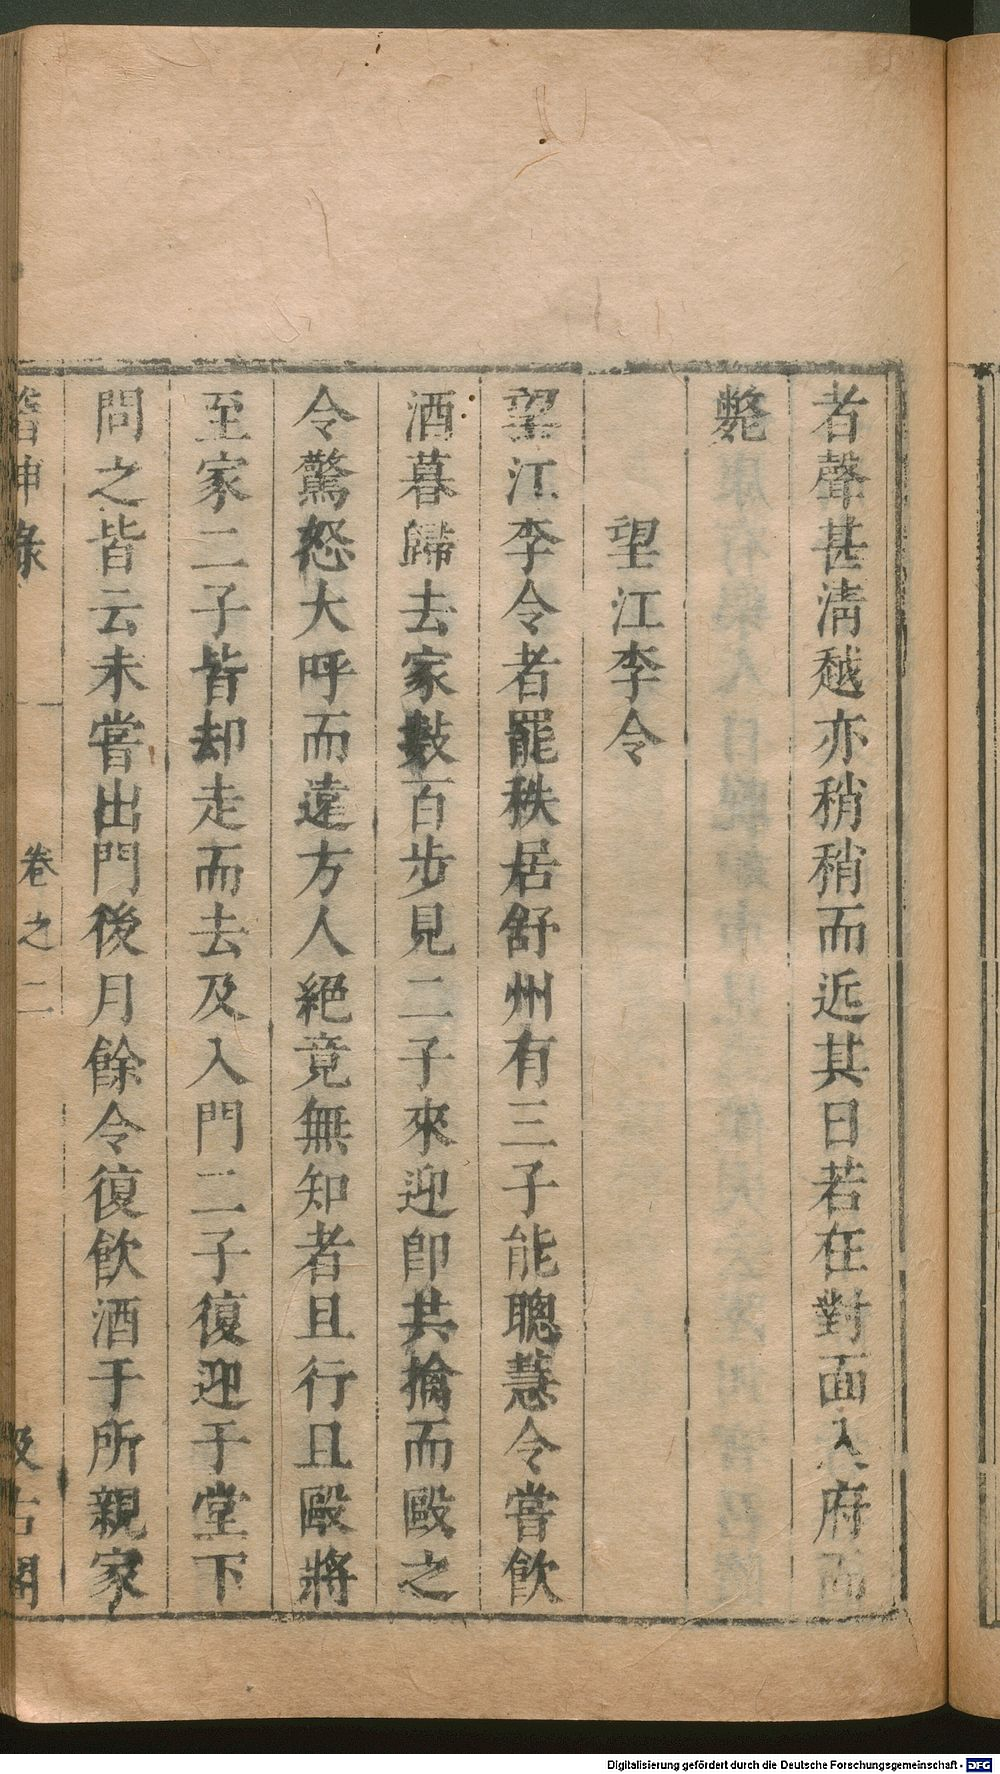 者聲甚淸越亦稍稍而近其日若在對面入府而
斃
望江李令
望江李令者罷秩居舒州有三子能聰慧令嘗飮
酒暮歸去家數百步見二子來迎卽共擒而毆之
令驚怒大呼而遠方人絕竟無知者且行且毆將
至家二子皆却走而去及入門二子復迎于堂下
問之皆云未嘗出門後月餘令復飮酒于所親家
稽神錄
卷之二
汲古閣
Digitalisierung gefördert durch die Deutsche Forschungsgemeinschaft - DFG